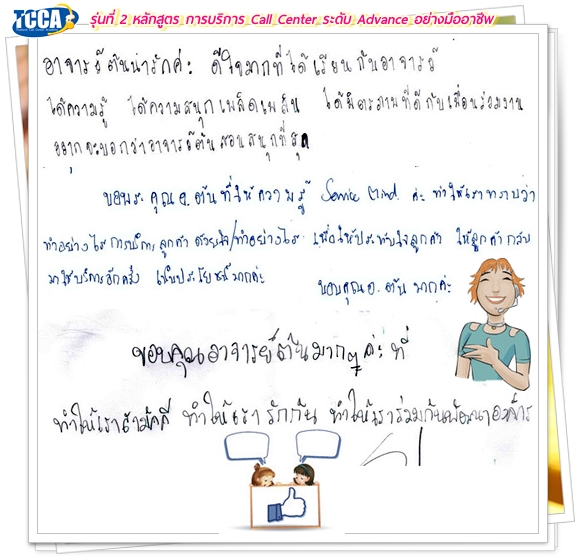 TCCA
รุ่นที่ 2 หลักสูตร การบริการ Call Center ระดับ Advance อย่างมืออาชีพ
อาจารย์ต้นน่ารักค่ะ ดีใจมากที่ได้เรียนกับอาจารย์
ได้ความรู้ ได้ความสนุกเพลิดเพลิน ได้มิตรภาพที่ดีกับเพื่อนร่วมงาน
อยากจะบอกว่าอาจารย์ต้นสอนสนุกที่สุด
ขอบพระคุณ อ. ต้น ที่ให้ความรู้ Service Mind ค่ะ ทำให้เราทราบว่า
ทำอย่างไร การบริการลูกค้า ด้วยใจ/ทำอย่างไร เพื่อให้ประทับใจลูกค้า ให้ลูกค้ากลับ
มาใช้บริการอีกครั้ง เป็นประโยชน์มากค่ะ
ขอบคุณ อ. ต้น มากค่ะ
ขอบคุณอาจารย์ต้นมากๆ ค่ะ ที่
ทำให้เราสามัคคี ทำให้เรารักกัน ทำให้เราร่วมกันพัฒนาองค์กร